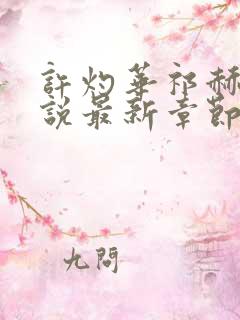 許灼華祁赫
說最新章節
九問